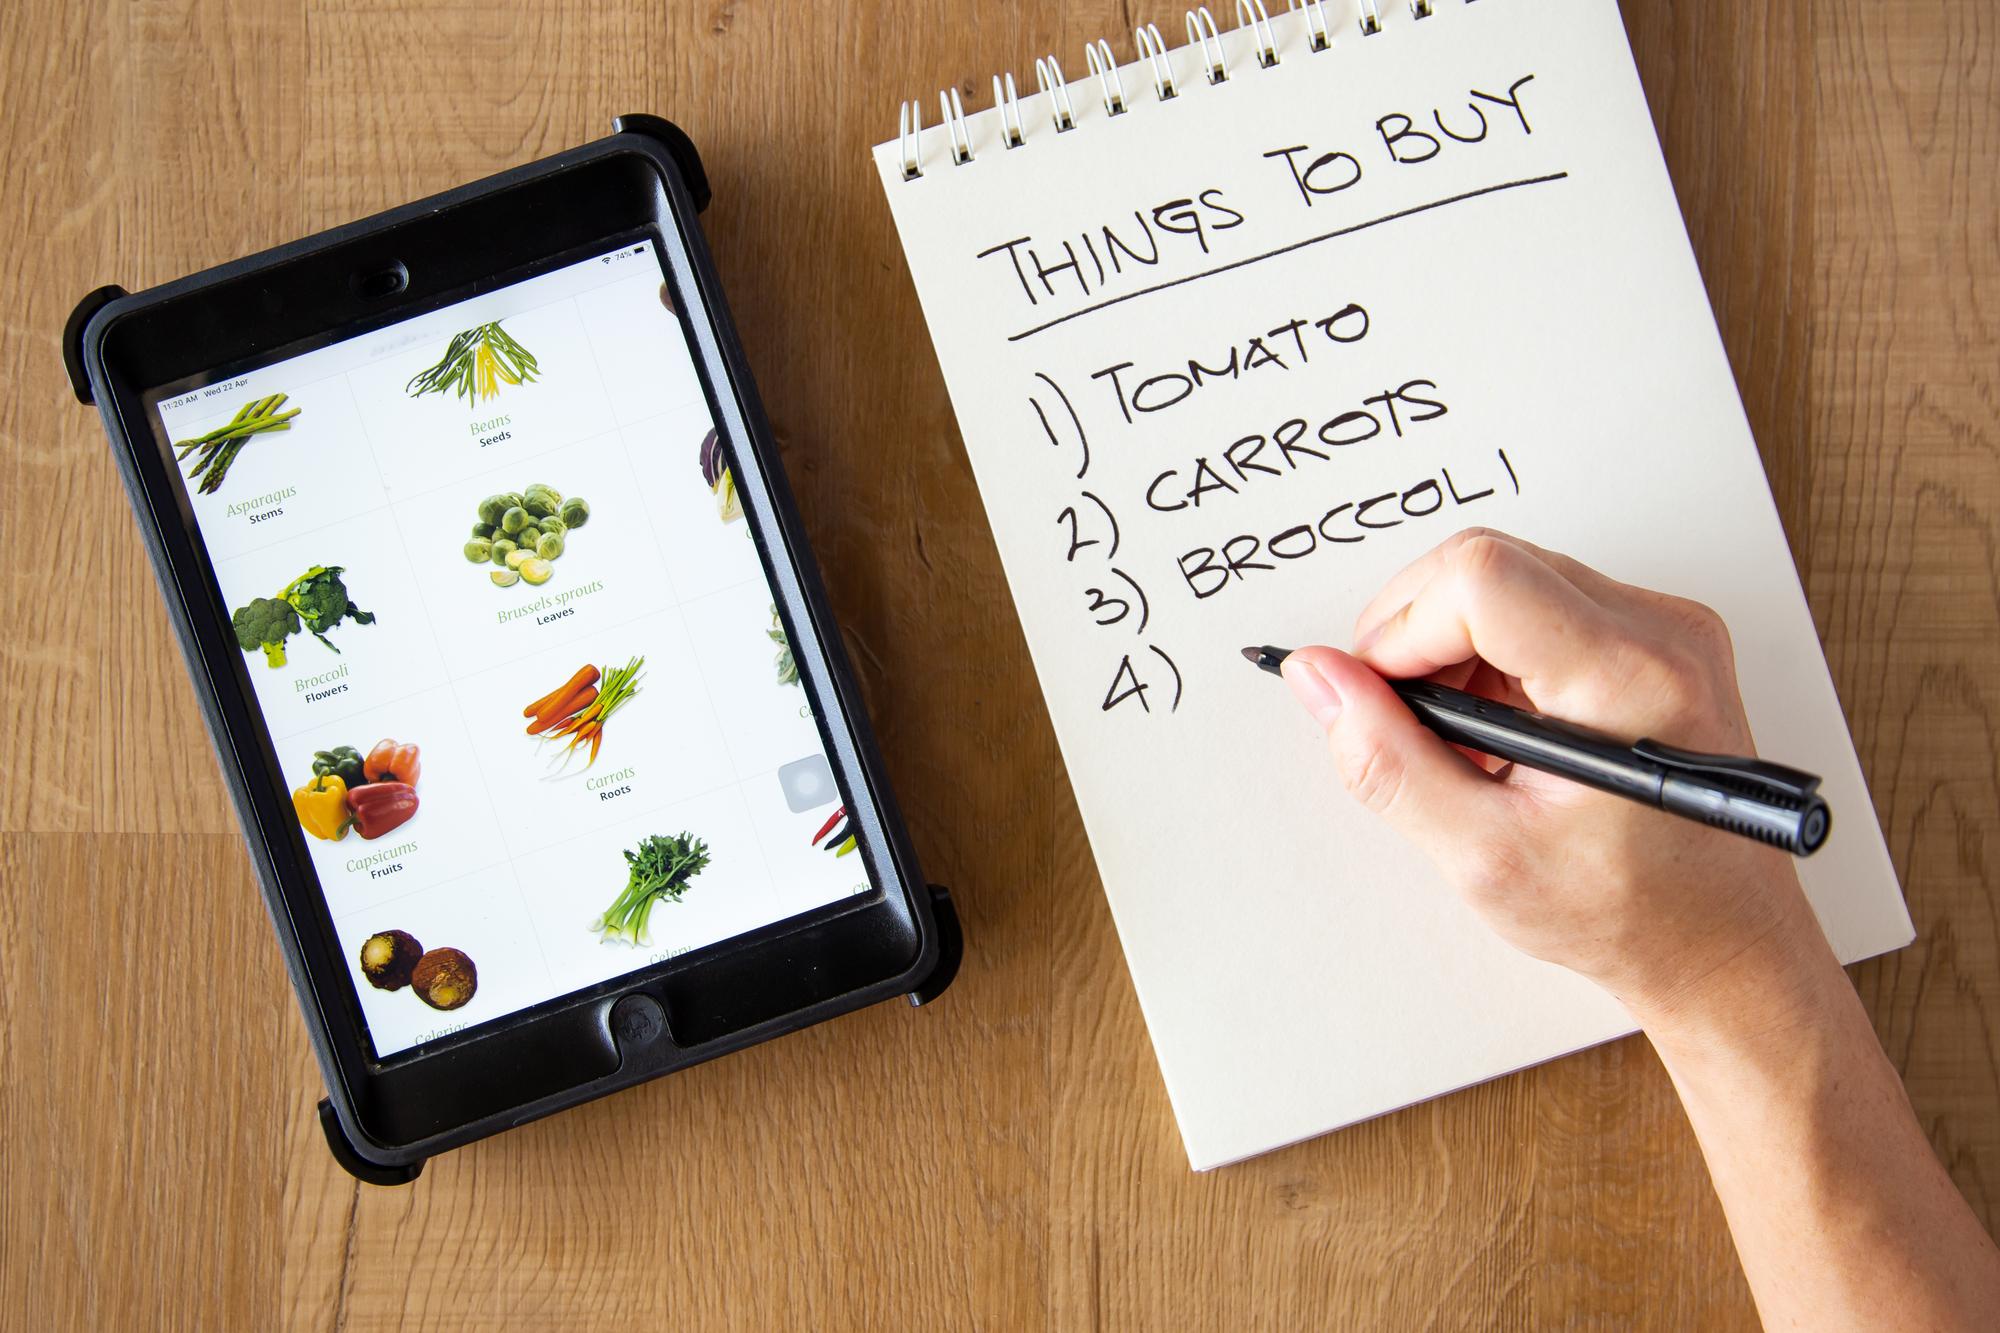 11:20 AM Wed 22 Apr
74%
Asparagus
Stems
Beans
Seeds
Broccoli
Flowers
Brussels sprouts
Leaves
Capsicums
Fruits
Carrots
Roots
Celeriac
Celery
Ch
THINGS TO BUY
1) TOMATO
2) CARROTS
3) BROCCOLI
4)